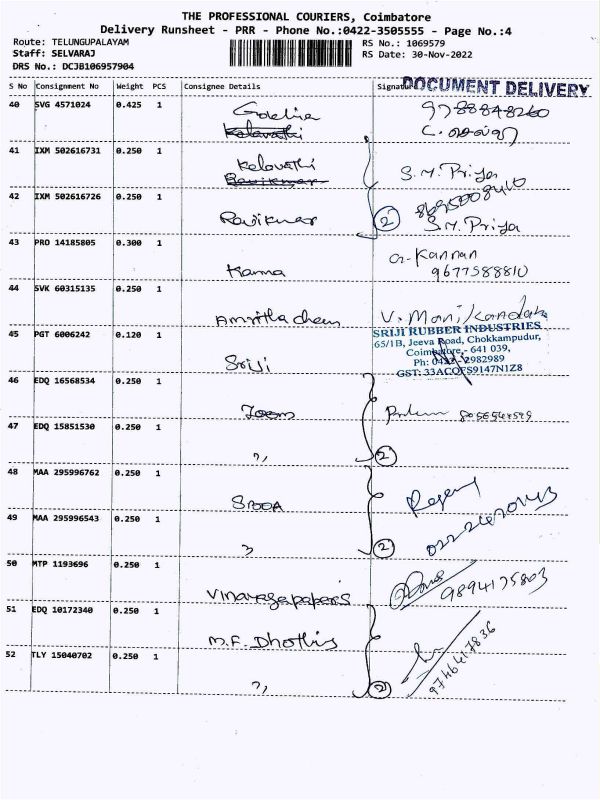 THE PROFESSIONAL COURIERS, Coimbatore
Delivery Runsheet - PRR - Phone No.:0422-3505555 - Page No.:4
Route: TELUNGUPALAYAM RS No.: 1069579
Staff: SELVARAJ RS Date: 30-Nov-2022
DRS No.: DCJB106957904
S No Consignment No Weight PCS Consignee Details Signature
DOCUMENT DELIVERY
40 SVG 4571024 0.425 1
9788848260
Kalavathi
41 IXM 502616731 0.250 1
Kalavathi S.M. Priya
Ravikumar
42 IXM 502616726 0.250 1
8695008410
Ravikumar 2 S.M. Priya
43 PRO 14185805 0.300 1
Kanna G. Kannan
9677588810
44 SVK 60315135 0.250 1
Amritha chem V. Manikandan
45 PGT 6006242 0.120 1
Sriji
SRIJI RUBBER INDUSTRIES
65/1B, Jeeva Road, Chokkampudur,
Coimbatore - 641 039,
Ph: 0422 - 2982989
GST: 33ACOFS9147N1Z8
46 EDQ 16568534 0.250 1
Zoom
47 EDQ 15851530 0.250 1
,, 2
48 MAA 295996762 0.250 1
49 MAA 295996543 0.250 1
,, 2
50 MTP 1193696 0.250 1
Vinayaga papers 9894175803
51 EDQ 10172340 0.250 1
M.F. Dhothis
52 TLY 15040702 0.250 1
,, 2 9746417836